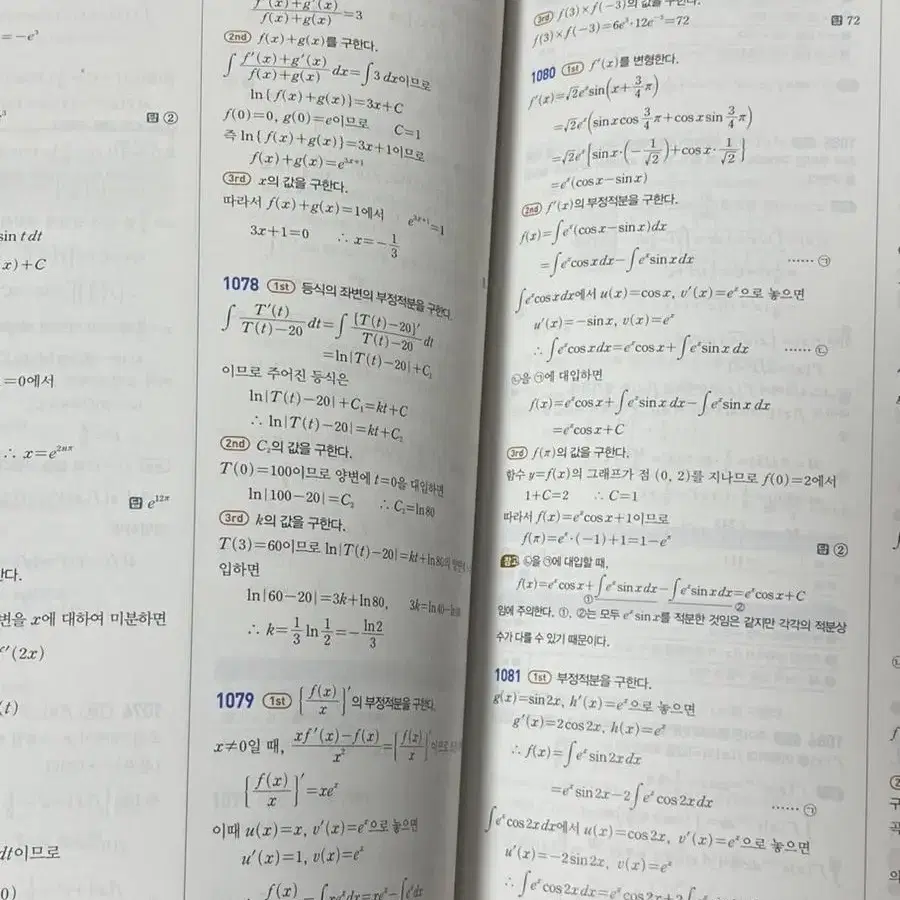 =-e³
답 ②
sin t dt
x)+C
=0에서
∴ x=e^{2nπ}
답 e^{12π}
변을 x에 대하여 미분하면
(2x)
(t)
dt이므로
0)
\frac{f'(x)+g'(x)}{f(x)+g(x)}=3
2nd f(x)+g(x)를 구한다.
∫\frac{f'(x)+g'(x)}{f(x)+g(x)}dx=∫3 dx이므로
ln{f(x)+g(x)}=3x+C
f(0)=0, g(0)=e이므로 C=1
즉 ln{f(x)+g(x)}=3x+1이므로
f(x)+g(x)=e^{3x+1}
3rd x의 값을 구한다.
따라서 f(x)+g(x)=1에서 e^{3x+1}=1
3x+1=0 ∴ x=-\frac{1}{3}
1078 1st 등식의 좌변의 부정적분을 구한다.
∫\frac{T'(t)}{T(t)-20}dt=∫\frac{{T(t)-20}'}{T(t)-20}dt
=ln|T(t)-20|+C₁
이므로 주어진 등식은
ln|T(t)-20|+C₁=kt+C
∴ ln|T(t)-20|=kt+C₂
2nd C₂의 값을 구한다.
T(0)=100이므로 양변에 t=0을 대입하면
ln|100-20|=C₂ ∴ C₂=ln80
3rd k의 값을 구한다.
T(3)=60이므로 ln|T(t)-20|=kt+ln80의
입하면
ln|60-20|=3k+ln80, 3k=ln40-
∴ k=\frac{1}{3}ln\frac{1}{2}=-\frac{ln2}{3}
1079 1st {\frac{f(x)}{x}}'의 부정적분을 구한다.
x≠0일 때, \frac{xf'(x)-f(x)}{x²}={\frac{f(x)}{x}}'이므로
{\frac{f(x)}{x}}'=xe^x
이때 u(x)=x, v'(x)=e^x으로 놓으면
u'(x)=1, v(x)=e^x
\frac{f(x)}{x}=∫xe^x dx=xe^x-∫e^x dx
3rd f(3)×f(-3)의 값을 구한다.
f(3)×f(-3)=6e³·12e^{-3}=72
답 72
1080 1st f'(x)를 변형한다.
f'(x)=√2e^x sin(x+\frac{3}{4}π)
=√2e^x(sin x cos\frac{3}{4}π+cos x sin\frac{3}{4}π)
=√2e^x{sin x·(-\frac{1}{√2})+cos x·\frac{1}{√2}}
=e^x(cos x-sin x)
2nd f'(x)의 부정적분을 구한다.
f(x)=∫e^x(cos x-sin x)dx
=∫e^x cos x dx-∫e^x sin x dx ······ ㉠
∫e^x cos x dx에서 u(x)=cos x, v'(x)=e^x으로 놓으면
u'(x)=-sin x, v(x)=e^x
∴ ∫e^x cos x dx=e^x cos x+∫e^x sin x dx ······ ㉡
㉡을 ㉠에 대입하면
f(x)=e^x cos x+∫e^x sin x dx-∫e^x sin x dx
=e^x cos x+C
3rd f(π)의 값을 구한다.
함수 y=f(x)의 그래프가 점 (0, 2)를 지나므로 f(0)=2에서
1+C=2 ∴ C=1
따라서 f(x)=e^x cos x+1이므로
f(π)=e^π·(-1)+1=1-e^π
답 ②
참고 ㉡을 ㉠에 대입할 때,
f(x)=e^x cos x+∫e^x sin x dx-∫e^x sin x dx=e^x cos x+C
① ②
임에 주의한다. ①, ②는 모두 e^x sin x를 적분한 것임은 같지만 각각의 적분상
수가 다를 수 있기 때문이다.
1081 1st 부정적분을 구한다.
g(x)=sin2x, h'(x)=e^x으로 놓으면
g'(x)=2cos2x, h(x)=e^x
∴ f(x)=∫e^x sin2x dx
=e^x sin2x-2∫e^x cos2x dx ······ ㉠
∫e^x cos2x dx에서 u(x)=cos2x, v'(x)=e^x으로 놓으면
u'(x)=-2sin2x, v(x)=e^x
∴ ∫e^x cos2x dx=e^x cos2x+2∫